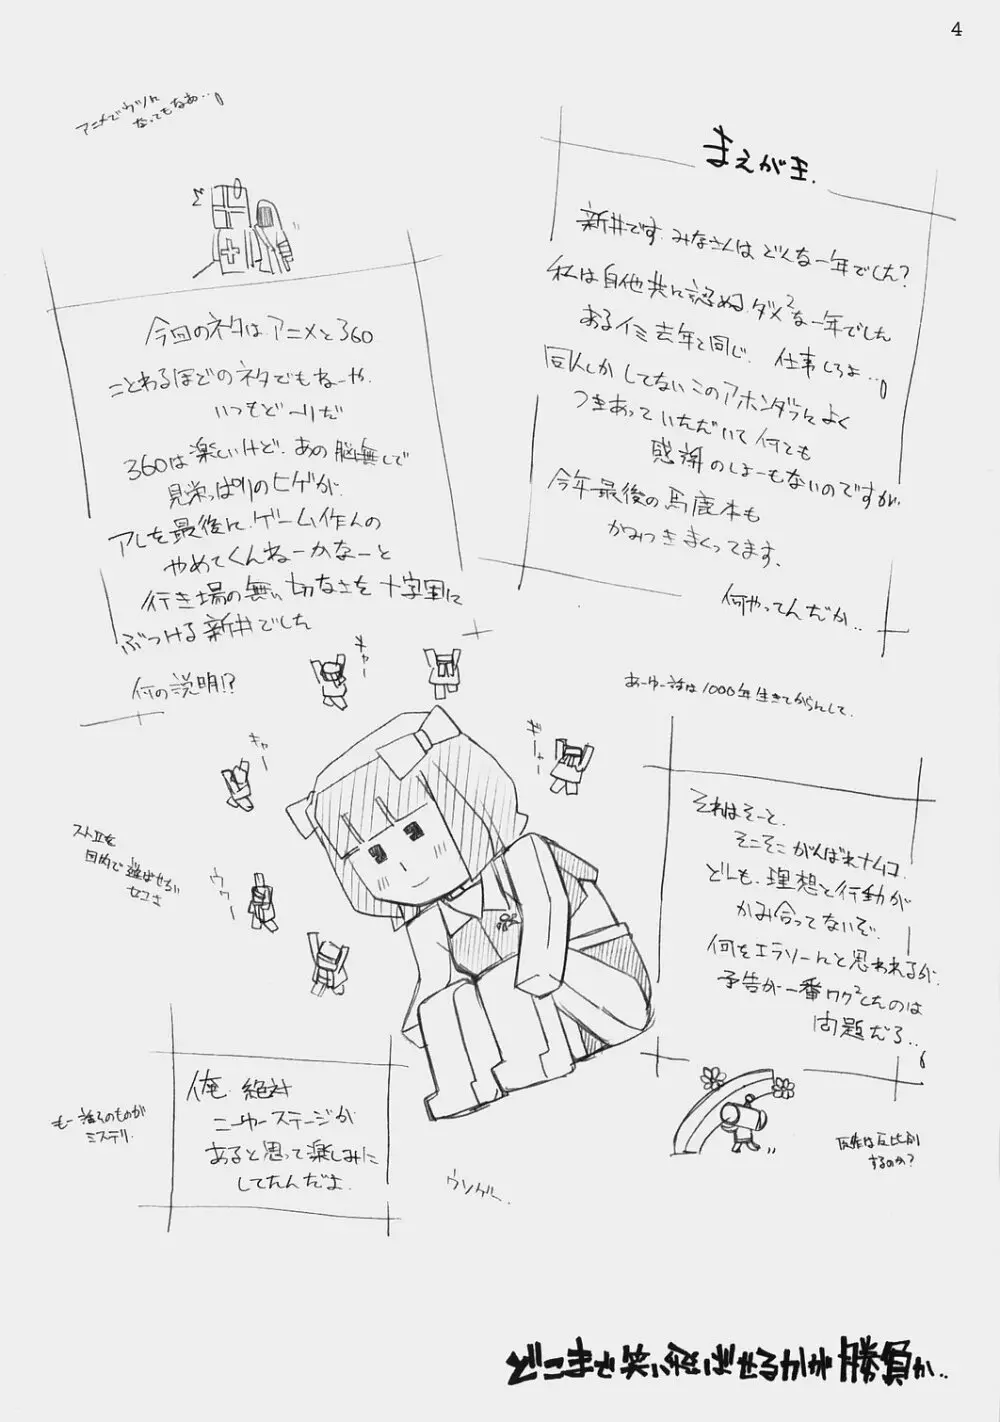 4
まえが王.
新井です. みなさんは どんな一年でした?
私は自他共に認める. ダメ²な一年でした
あるイミ去年と同じ. 仕事しろよ…。
同人しか してない このアホンダラに よく
つきあって いただいて 何とも
感謝のしよーもないのですが.
今年最後の馬鹿本も
かみつきまくってます.
何やってんだか..
アニメでウツに
なってもなあ…。
今回のネタは アニメと360
ことわるほどのネタでもねーや.
いつもど〜りだ
360は楽しいけど. あの脳無しで
見栄っぱりのヒゲが.
アレを最後に. ゲーム作んの
やめてくんねーかなーと
行き場の無い切なさを 十字軍に
ぶつける新井でした
何の説明!?
キャー
キャー
ギャー
ウゥー
ストIIを
目的で遊ばせない
セコさ
あーゆー話は1000年生きてからんして.
それはそーと.
そこそこがんばれナムコ.
どーも. 理想と行動が
かみ合ってないぞ.
何をエラソーにと思われるが.
予告が一番ワク²したのは
問題だろ..
俺. 絶対
ニューステージが
あると思って楽しみに
してたんだよ.
もー 語るのものが
ミステリ.
ウソゲー.
反比例
するのか?
どこまで笑い飛ばせるかが勝負か..